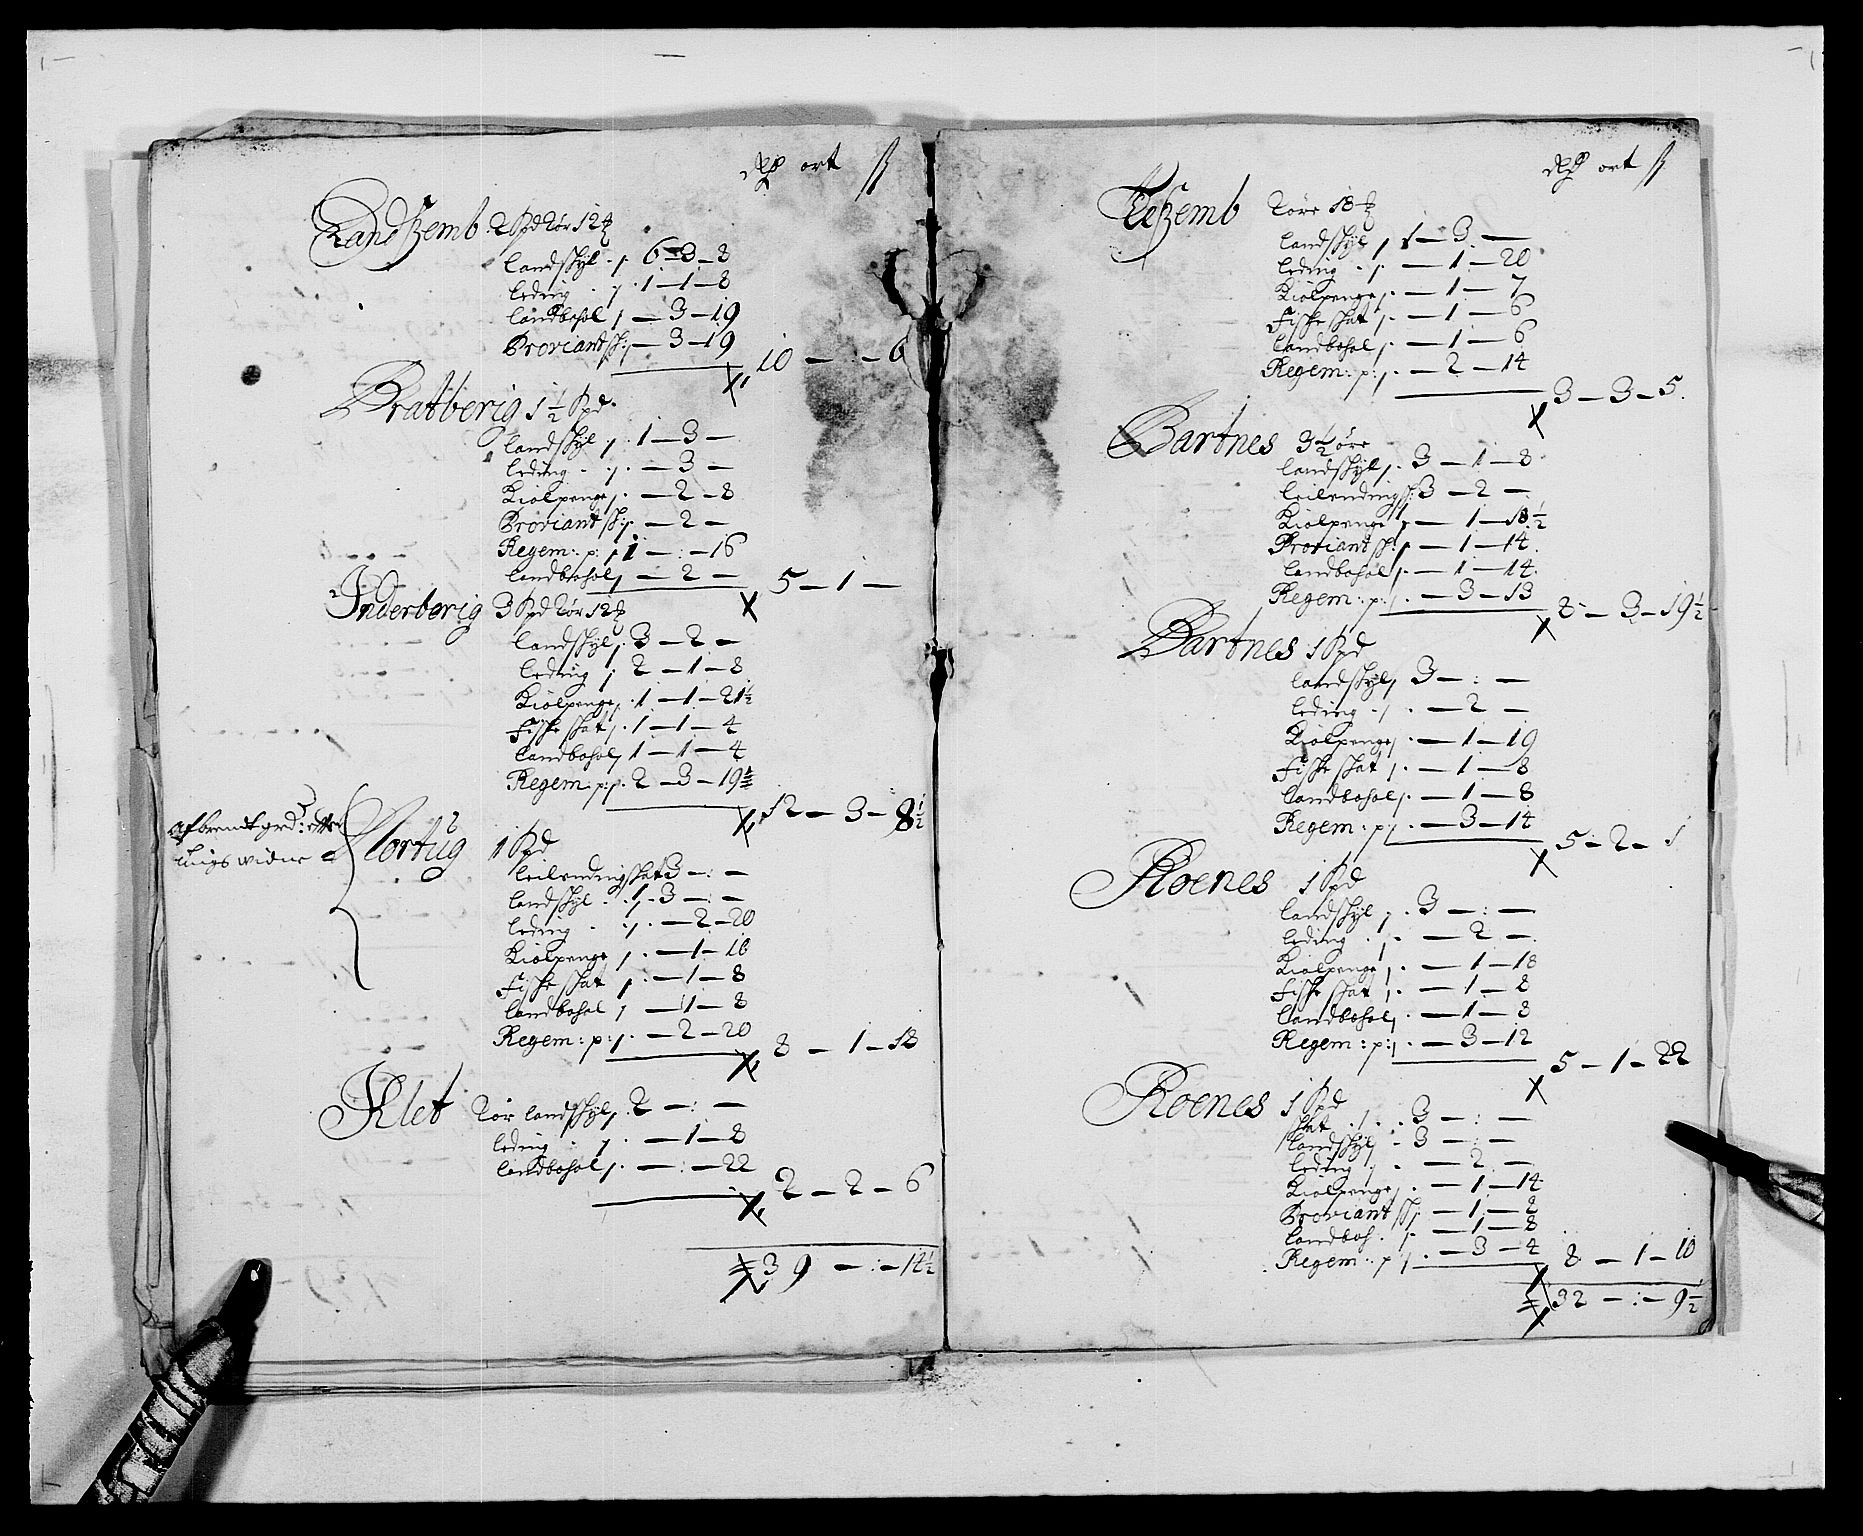 dlr ort ß
Landszemb 2 Spd 2 ør 12
landskyl 6 – 3 – 8
leding 1 – 1 – 8
landbohol – 3 – 19
Proviant sk: – 3 – 19
10 – : – 6
Bratberig 1 ½ Spd
landskyl 1 – 3 –
leding – 3 –
Kiølpenge – 2 – 8
Proviant sk: – 2 –
Regem: p: 1 – : – 16
landbohol – 2 –
5 – 1 –
Inderberig 3 Spd 2 ør 12
landskyl 3 – 2 –
leding 2 – 1 – 8
Kiølpenge 1 – 1 – 21½
Fiske skat 1 – 1 – 4
landbohol 1 – 1 – 4
Regem: p: 2 – 3 – 19½
12 – 3 – 8½
Hortug 1 Spd
leilendingskat 3 – : –
landskyl 3 – : –
leding – 2 – 20
Kiølpenge – 1 – 16
Fiske skat – 1 – 8
landbohol – 1 – 8
Regem: p: – 2 – 20
8 – 1 – 18
Klet 2 ør landskyl 2 – : –
leding – 1 – 8
landbohol – : – 22
2 – 2 – 6
39 – : – 14½
dlr ort ß
2 øre 18
landskyl 1 – 3 –
leding – 1 – 20
Kiølpenge – 1 – 7
Fiske skat – 1 – 6
landbohol – 1 – 6
Regem: p: – 2 – 14
3 – 3 – 5
Bartnes 3½ øre
landskyl 3 – 1 – 8
leilending s: 3 – 2 –
Kiølpenge – 1 – 18½
Proviant sk: – 1 – 14
landbohol – 1 – 14
Regem: p: – 3 – 13
8 – 3 – 19½
Bartnes 1 Spd
landskyl 3 – : –
leding – 2 –
Kiølpenge – 1 – 19
Fiske skat – 1 – 8
landbohol – 1 – 8
Regem: p: – 3 – 14
5 – 2 – 1
Roenes 1 Spd
landskyl 3 – : –
leding – 2 –
Kiølpenge – 1 – 18
Fiske skat – 1 – 8
landbohol – 1 – 8
Regem: p: – 3 – 12
5 – 1 – 22
Roenes 1 Spd
skat 3 – : –
landskyl 3 – : –
leding – 2 –
Kiølpenge – 1 – 14
Proviant sk: – 1 – 8
landboh. – 1 – 8
Regem: p: – 3 – 4
8 – 1 – 10
32 – : – 9½